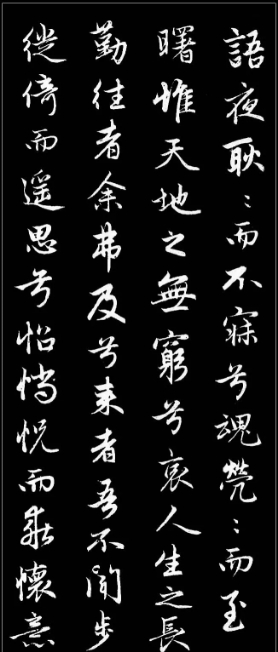 語夜耿々而不寐兮魂煢々而至
曙惟天地之無窮兮哀人生之長
勤往者余弗及兮来者吾不聞步
徙倚而遥思兮怊惝怳而乖懷意